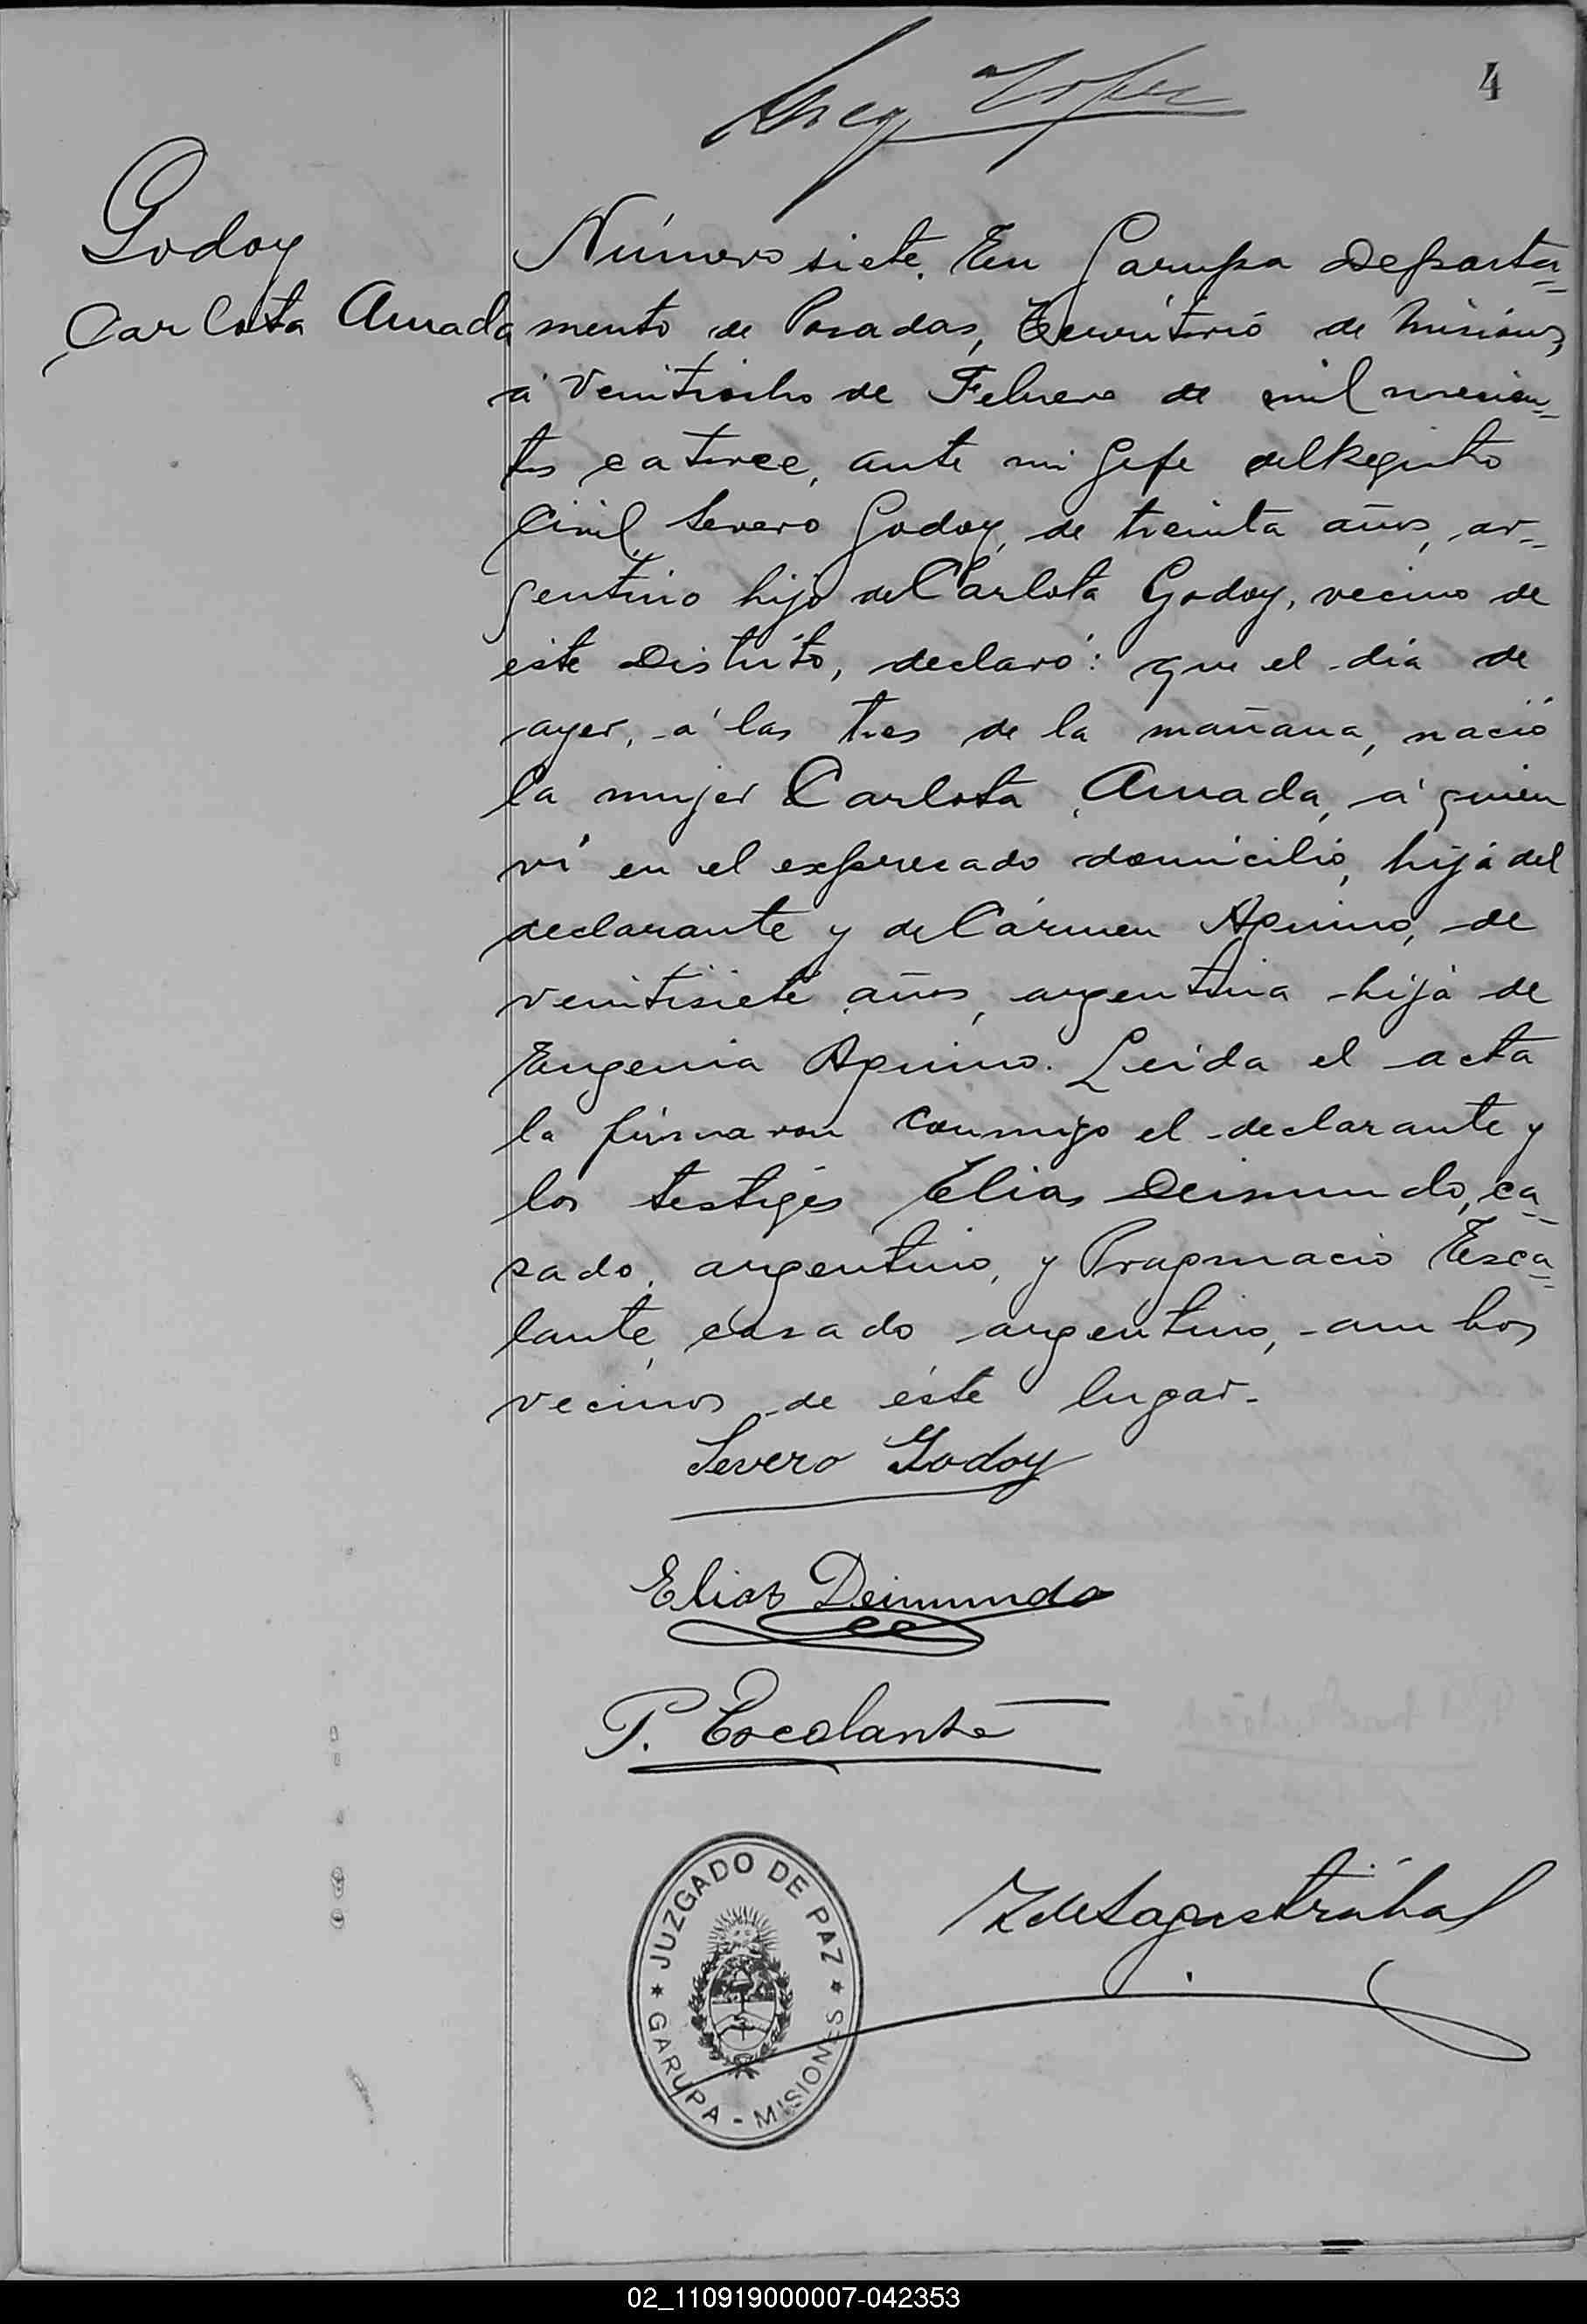 4
Godoy
Carlota Amada
Número siete. En Garupa Departa=
mento de Posadas, Territorio de Misiones,
á veintiocho de Febrero de mil novecien=
tos catorce, ante mi Gefe del Registro
Civil, Severo Godoy, de treinta años, ar=
gentino hijo de Carlota Godoy, vecino de
este Distrito, declaró: que el dia de
ayer, á las tres de la mañana, nació
la mujer Carlota Amada, á quien
ví en el expresado domicilio, hija del
declarante y de Cármen Aquino, de
veintisiete años, argentina hija de
Eugenia Aquino. Leida el acta
la firmaron conmigo el declarante y
los testigos Elias Deimundo, ca=
sado, argentino, y Pragmacio Esca=
lante, casado argentino, ambos
vecinos de éste lugar.
Severo Godoy
Elias Deimundo
P. Escalante
JUZGADO DE PAZ
GARUPA - MISIONES
02_110919000007-042353